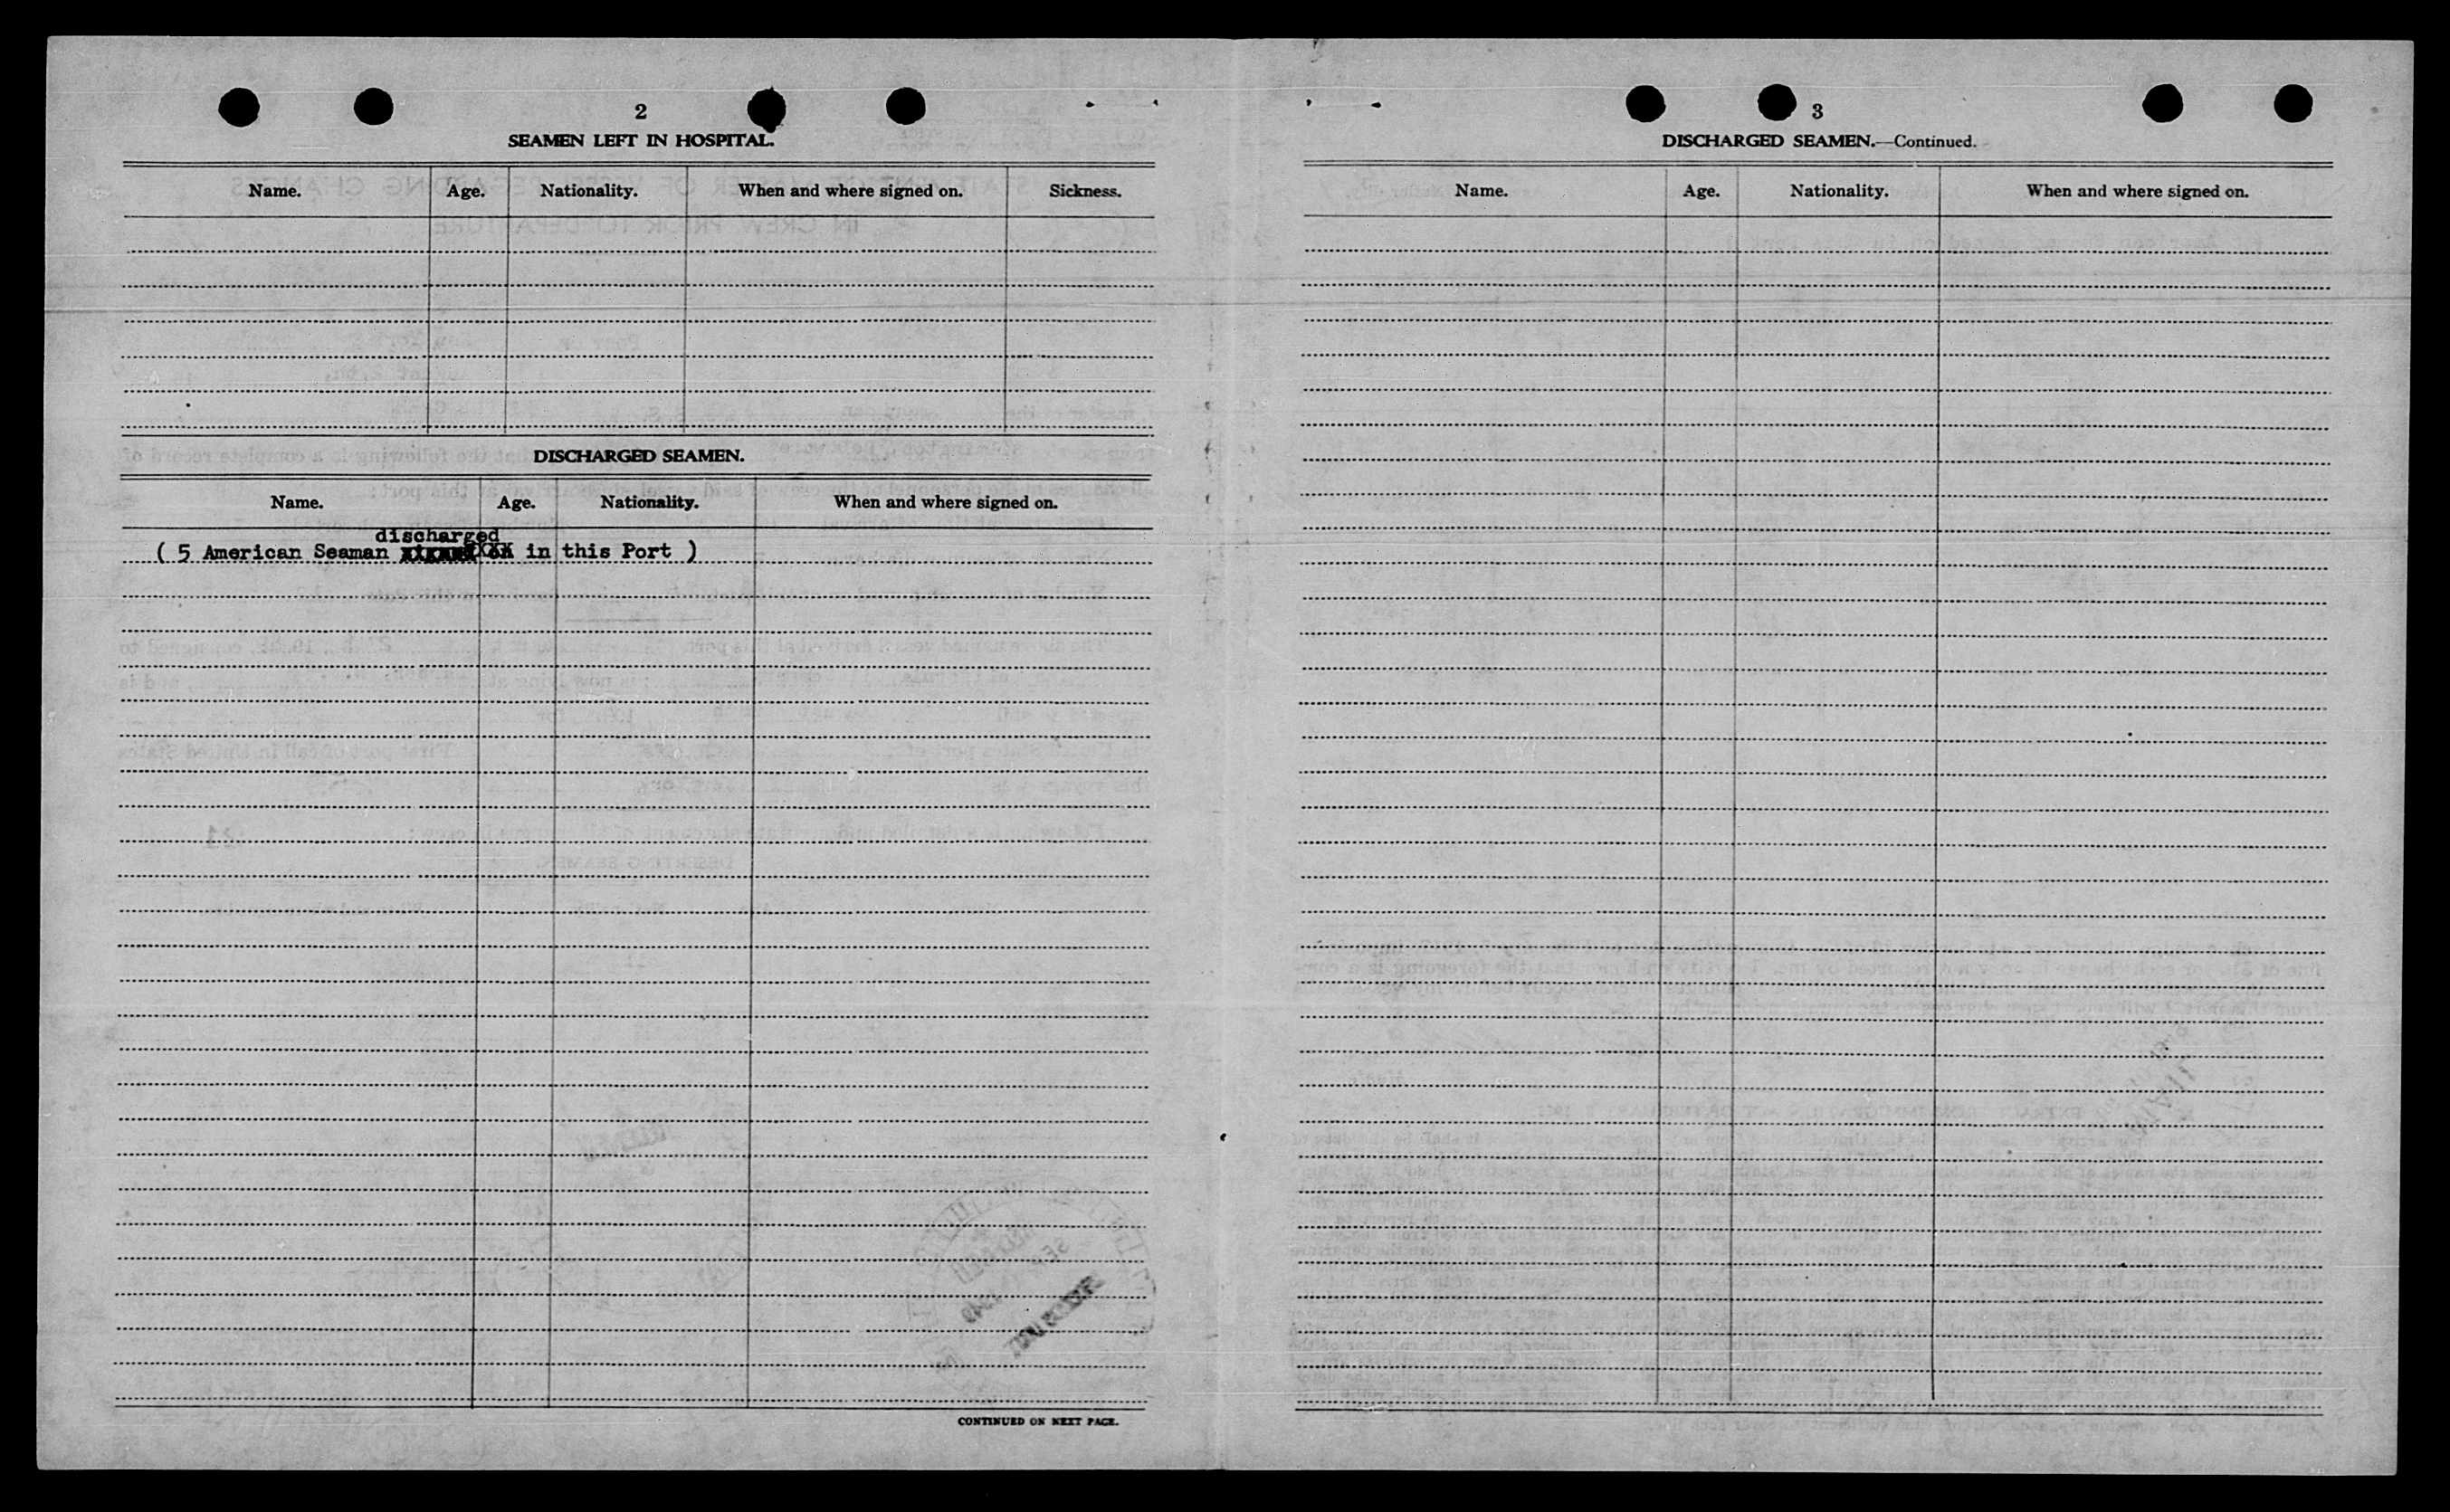 2
SEAMEN LEFT IN HOSPITAL.
Name. Age. Nationality. When and where signed on. Sickness.
DISCHARGED SEAMEN.
Name. Age. Nationality. When and where signed on.
discharged
( 5 American Seaman in this Port )
CONTINUED ON NEXT PAGE.
3
DISCHARGED SEAMEN.—Continued.
Name. Age. Nationality. When and where signed on.